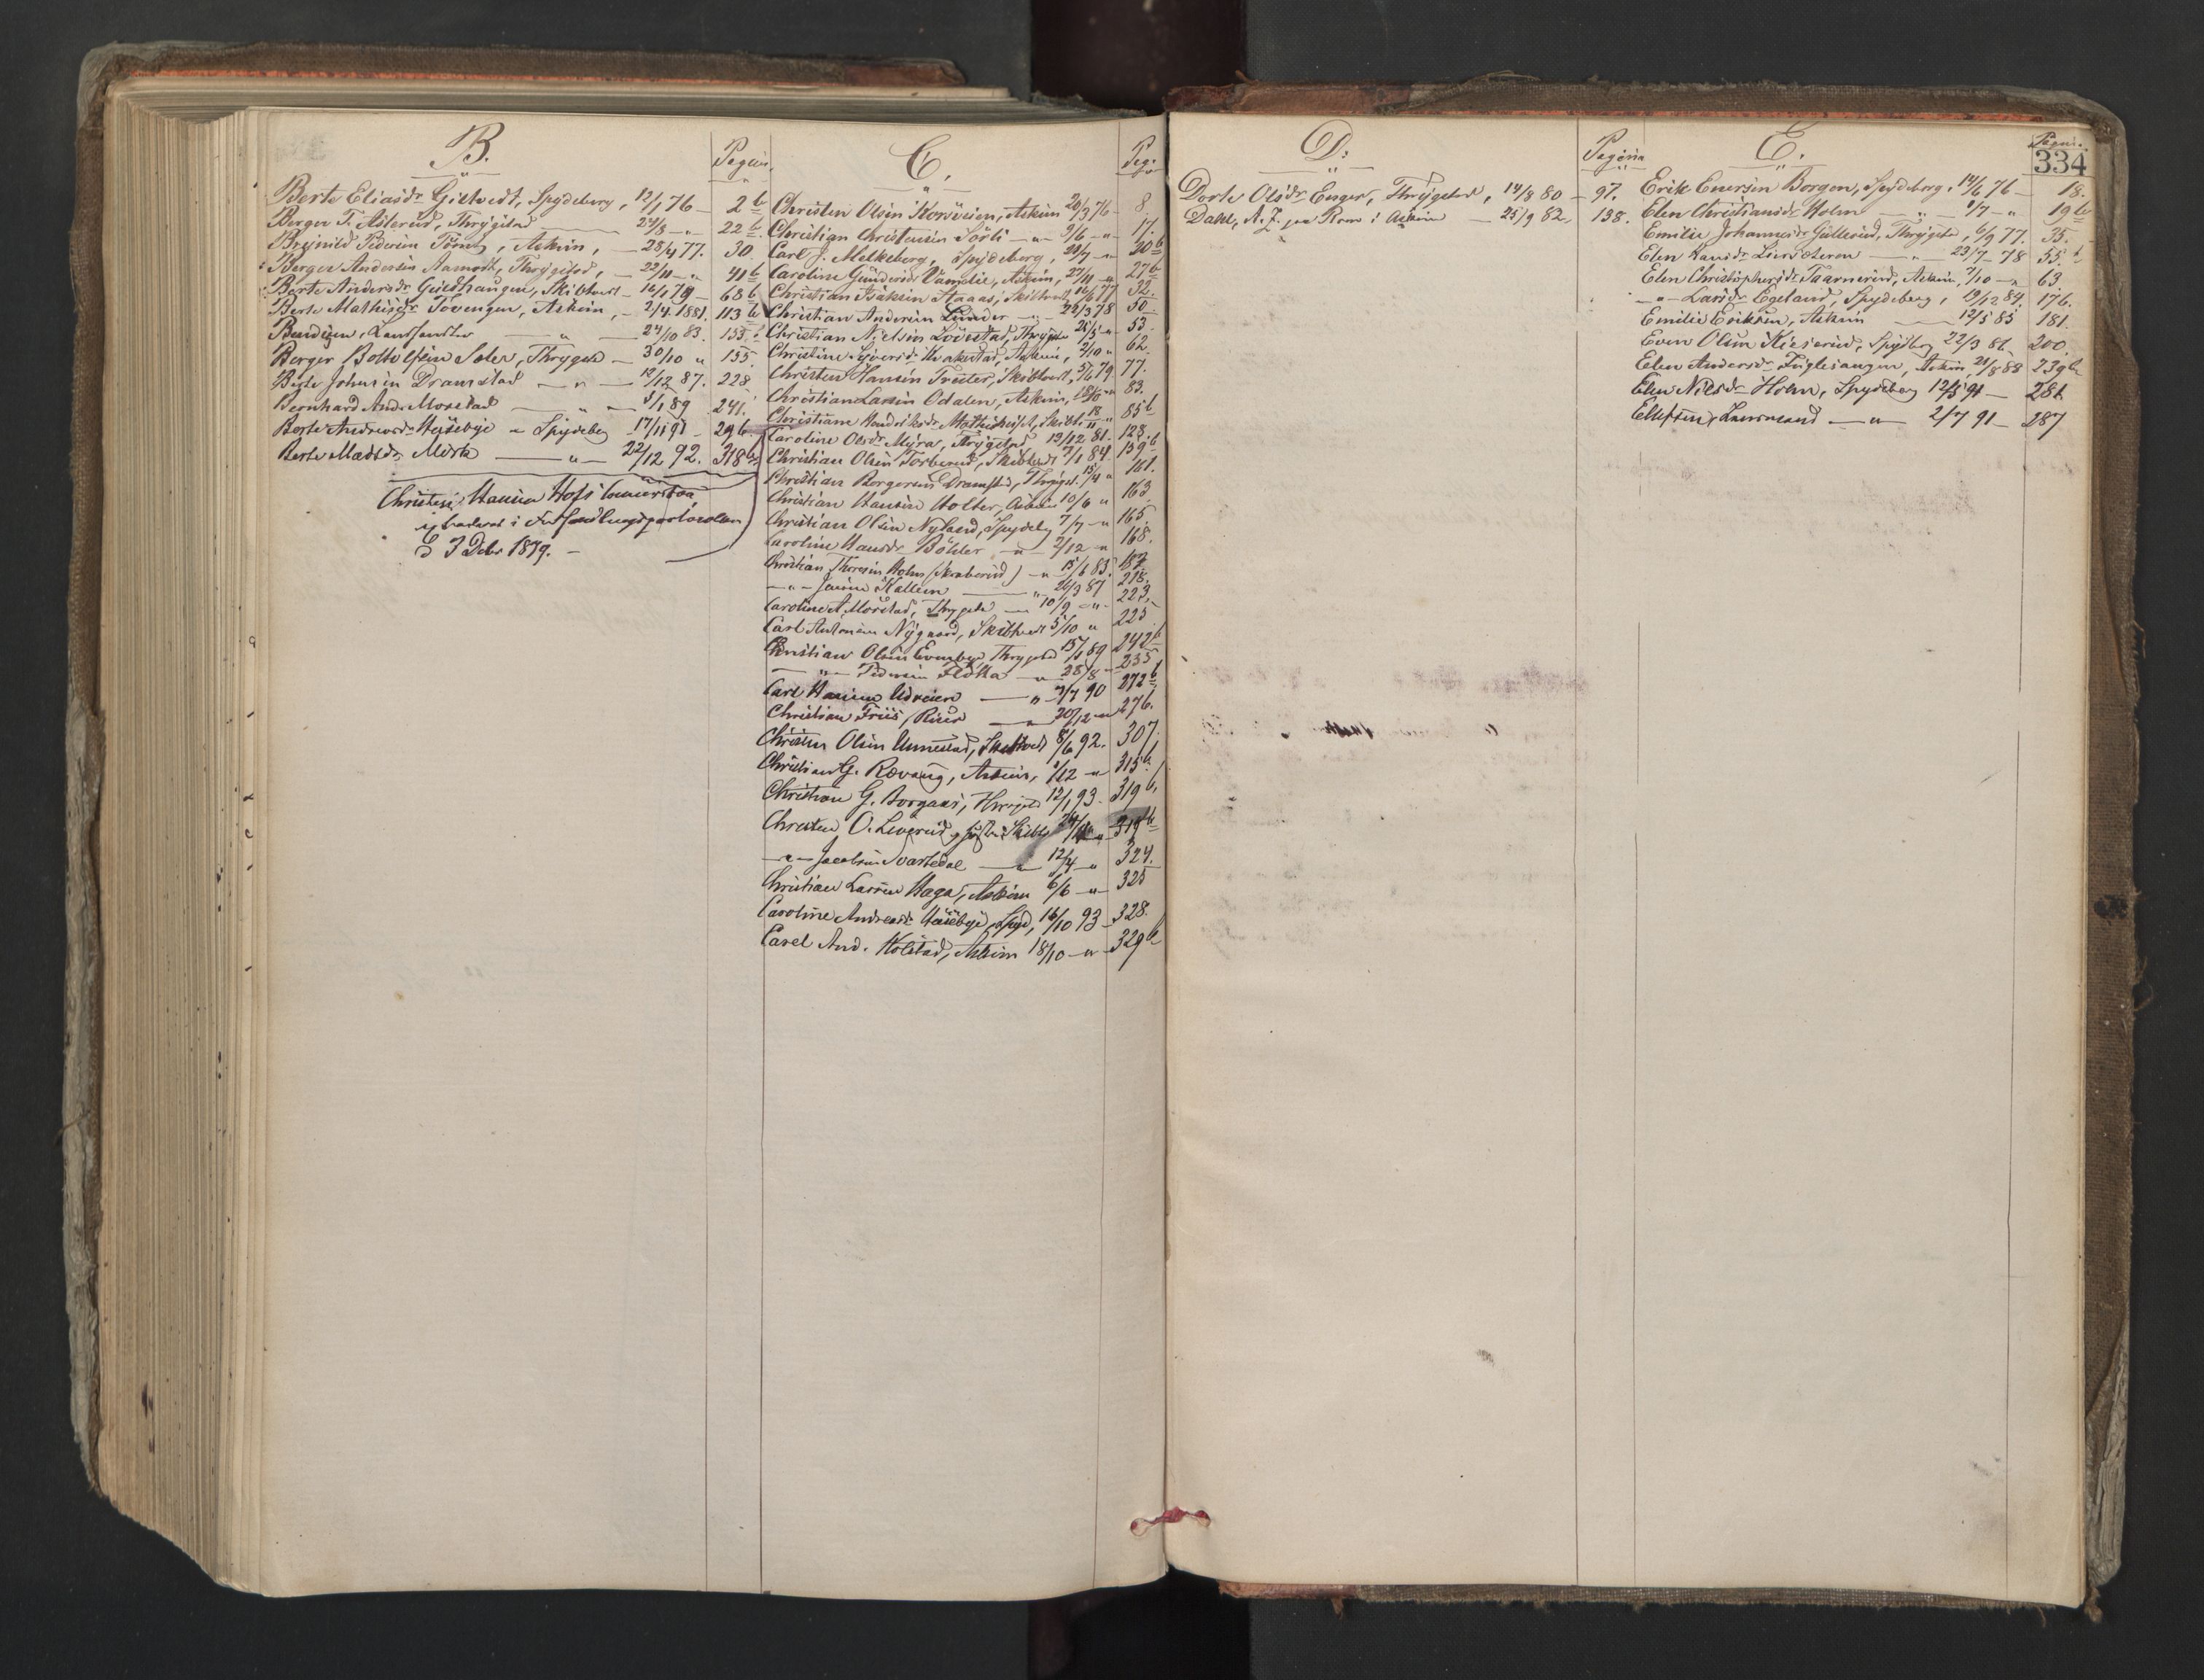 B.
Pagina
Berte Eliasdr Gjeltvedt, Spydeberg, 12/1 76 — 2 b
Berger T. Asterud, Thrygstad 24/8 — " 22 b.
Brynild Pedersen, Askim, — 28/4 77. 30.
Berger Andersen Aamodt, Thrygstad, — 22/11 — " 41 b
Berte Andersdr Gjeldhaugen, Skibtvedt — 16/1 79 — 68 b
Berte Mathisdr Tovengen, Askim, — 2/4 1881. 113 b
Bendixen, Landhandler — " — 24/10 83. 155. b
Berger Botholfsen Soler, Thrygstad — 30/10 " 155
Berte Johnsen Dramstad — " — 12/12 87. 228.
Bernhard And. Morstad — " — 5/1 89 241.
Berte Andreasdr Huseby " Spydeberg 17/11 91 — 296.
Berte Madsdr Mörk — " — 22/12 92. 318 b
Christine Hansen Hofs
i Forhandlingsprotocolen
d 3 Debr 1879. —
C.
Pag:
Christen Olsen Korsveien, Askim 20/3 76 — 8.
Christian Christensen Sörli — " — 9/6 — " — 17.
Carl J. Melkeberg, Spydeberg, 20/7 — " 20 b
Caroline Gundersdr Vamelie, Askim, 27/11 — " 27 b
Christian Isaksen Haaas, Skibtvedt 16/6 77 32.
Christian Andersen Lunder — " — 22/3 78 50.
Christian Nielsen Löverstad, Thrygstad 25/5 — " 53.
Christine Syversdr Krakerstad, Askim, 2/10 " 62.
Christen Hansen Troster, Skibtvedt, 5/6 79. 77.
Christian Larsen Odalen, Askim, 18/10 — " 83.
Christiane Hendriksdr Mathishuset, Skibt. 18/11 " 85 b
Caroline Olsdr Myra, Thrygstad 13/12 81. 128.
Christian Olsen Torberud, Skibtvedt 7/1 84. 159. b
Christian Borgersen Dramstad, Thrygst. 15/4 " 161.
Christian Hansen Holter, Askim 10/6 " 163
Christian Olsen Nyland, Spydebg 7/7 — " 165.
Caroline Hansdr Böhler — " — 2/12 — " 168.
Christian Thoresen Holm (Skraberud) — " 15/1 85. 182
— " — Jensen Kallem — " 26/3 87 218.
Caroline A. Morstad, Thrygstad — 10/9 — " — 223.
Carl Antonsen Nygaard, Skibtvedt 5/10 " 225
Christian Olsen Evenbye Thrygstad 15/1 89 242 b
— " — Pedersen Fladka — " 28/8 — " 255
Carl Hansen Udveien — " 7/7 90 272 b
Christian Friis, Riiser — " — 20/12 — " 276.
Christen Olsen Unnestad, Skibtvedt 8/6 92. 307.
Christian G. Rovaug, Askim, 1/12 — " 315 b.
Christian G. Borgaas, Thrygstad 12/1 93. 319 b.
Christen O. Leverud, Skibtv " 319 b
— " — Jacobsen Svartedal — " 12/4 — " 324.
Christian Larsen Haga, Askim 6/6 — " — 325
Caroline Andreasdr Husebye, Spyd, 16/10 93 — 328.
Carel And. Kolstad, Askim 18/10 — " — 329 b
D:
Pagina
Dorte Olsdr Enger, Thrygstad, 14/8 80 — 97.
Dahl, A. J. paa Rom i Askim — 25/9 82. 138.
E.
Pagina
334
Erik Evensen Borgen, Spydeberg, 14/6 76 — 18.
Elen Christiansdr Holm — " — 1/7 — " 19 b
Emilie Johannesdr Gullerud, Thrygstad, 6/9 77. 35.
Elen Hansdr — " — 23/7 78 55. b
Elen Christophersdr Taarnerud, Askim, 7/10 — " 63.
— " — Larsdr Egeland, Spydeberg, 19/12 84. 176.
Emilie Eriksen, Askim — 12/5 85 181.
Even Olsen Kieserud, Spydeberg 22/3 86. 200.
Elen Andersdr Fuglesangen, Askim, 21/8 88 239 b
Elen Nielsdr Holm, Spydeberg 12/5 91 — 281
Ellefsen, Lensmand — " — 2/7 91 — 287